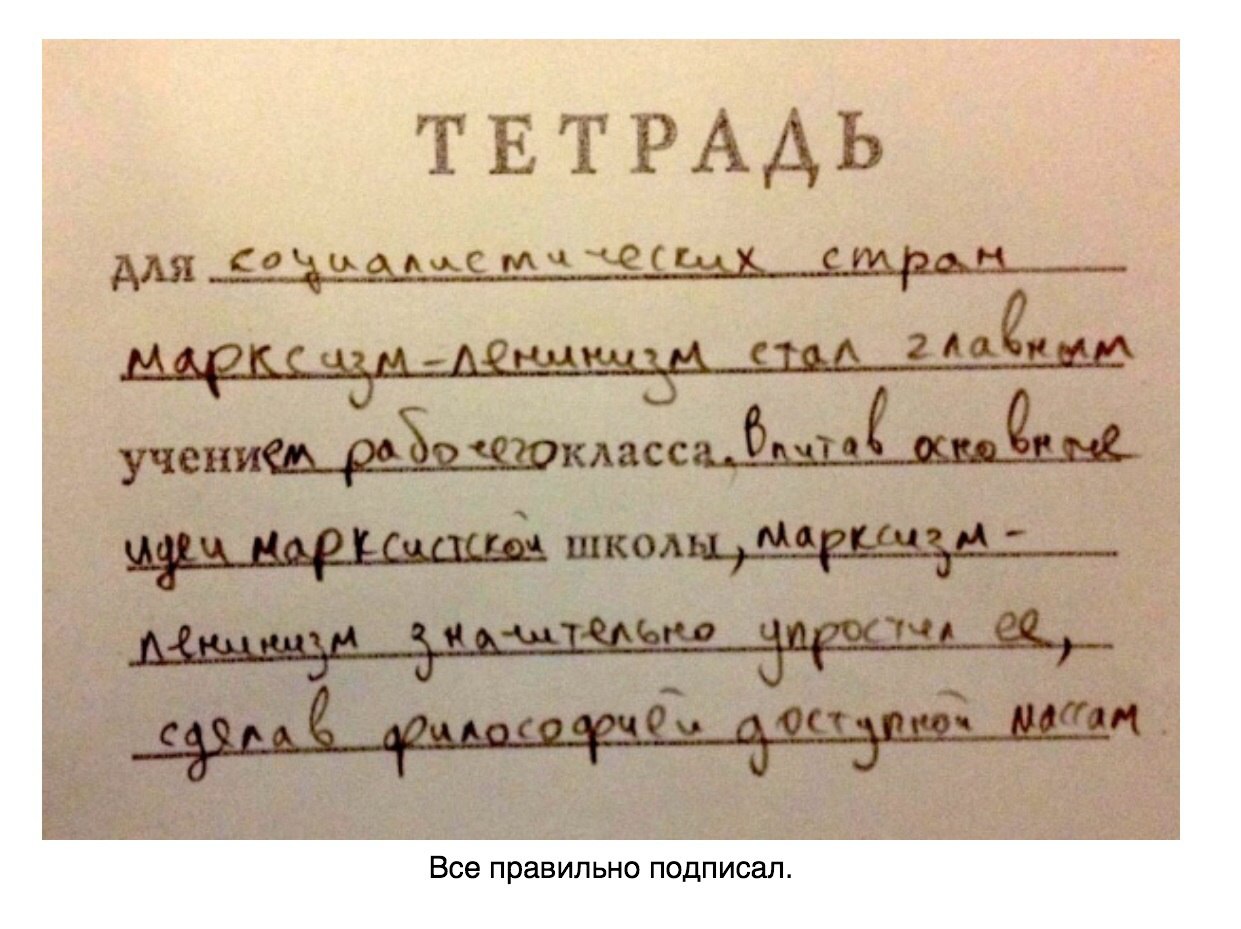 ТЕТРАДЬ
для социалистических стран
марксизм-ленинизм стал главным
учением рабочего класса. Впитав основные
идеи марксистской школы, марксизм-
ленинизм значительно упростил ее,
сделав философией доступной массам
Все правильно подписал.